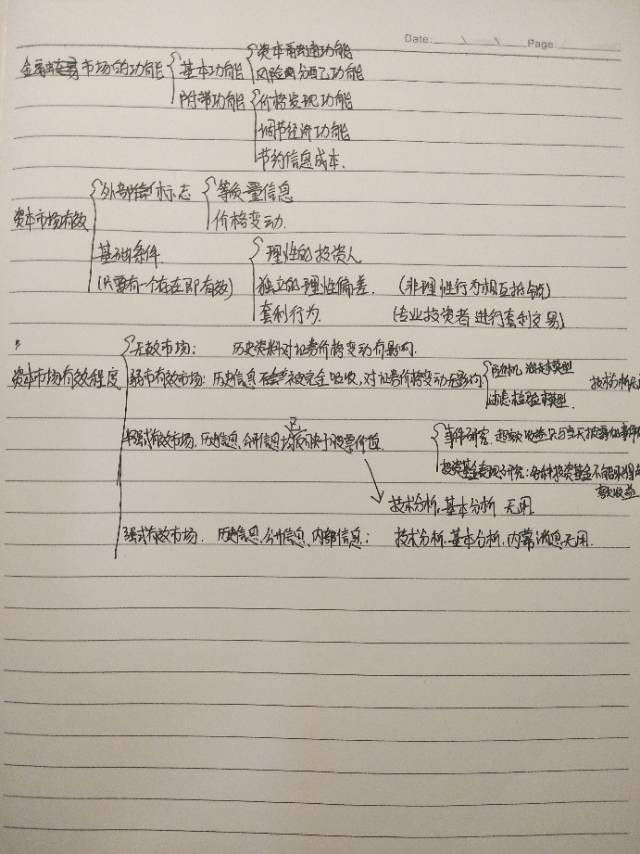 Date: Page:
资本融通功能
金融市场的功能 基本功能 风险分配功能
附带功能 价格发现功能
调节经济功能
节约信息成本.
外部标志 等质量信息
资本市场有效 价格变动.
基础条件 理性的投资人
(只要有一个存在即有效) 独立的理性偏差. (非理性行为相互抵销)
套利行为. (专业投资者进行套利交易)
无效市场: 历史资料对证券价格变动有影响.
资本市场有效程度 弱市有效市场: 历史信息 被完全吸收,对证券价格变动无影响 随机游走模型 技术分析无
过滤检验模型.
半强式有效市场. 历史信息,公开信息均已反映于股票价值. 事件研究. 超额收益只与当天披露的事件
投资基金表现研究: 各种投资基金不能取得
超额收益
技术分析,基本分析 无用.
强式有效市场. 历史信息,公开信息、内部信息; 技术分析、基本分析,内幕消息无用.